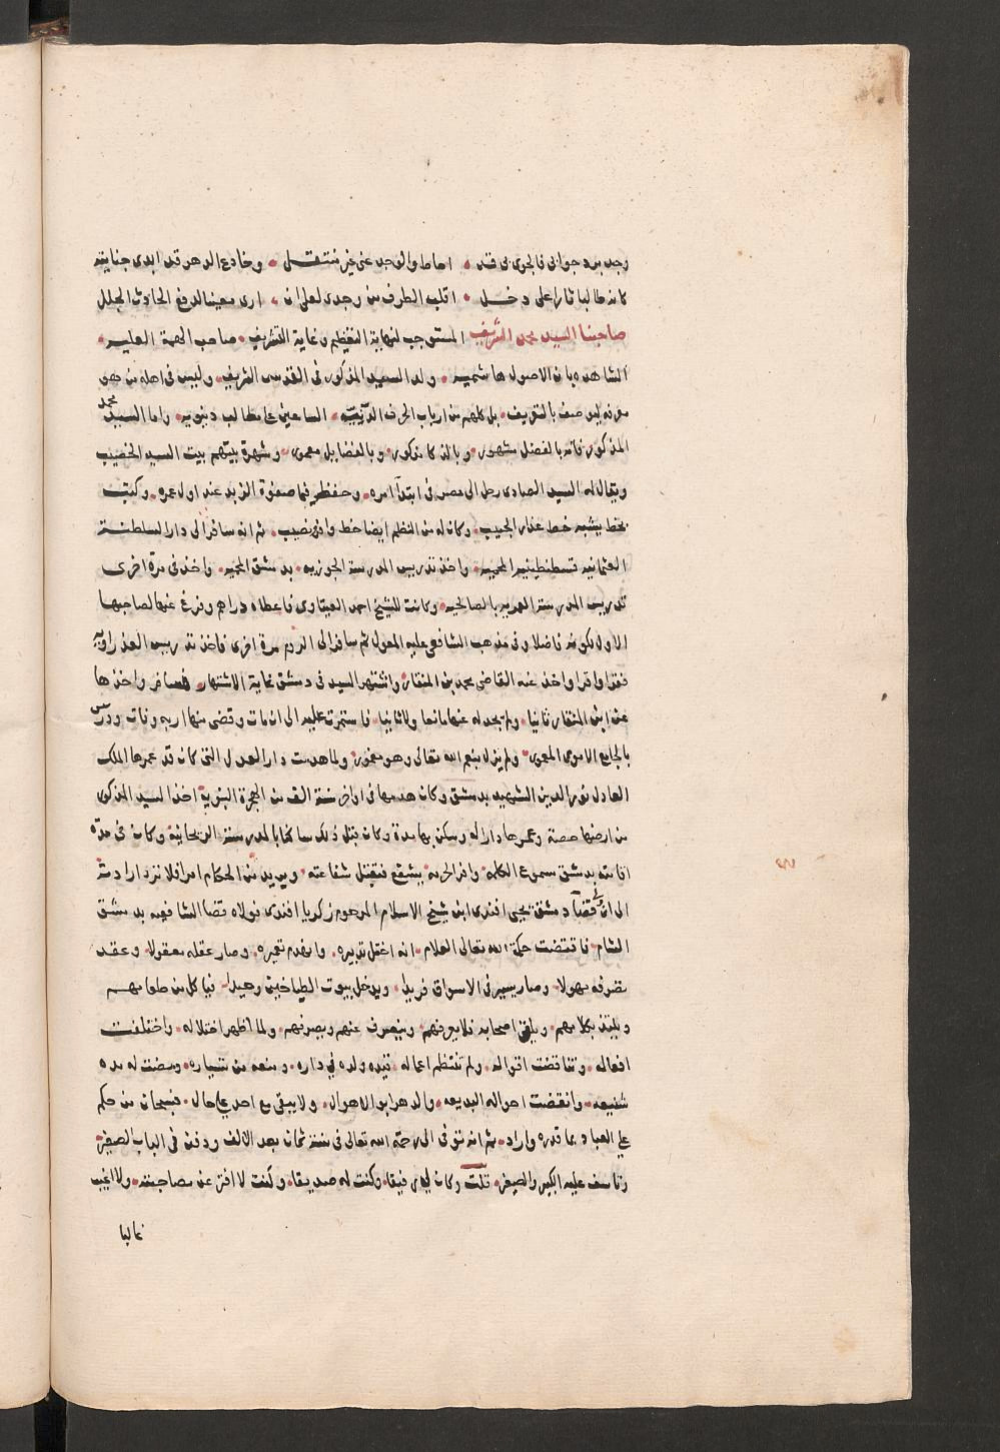 وجد مرد جوابي فالجوى بى فتد • احاط والوجد عنى غير منتقل • وخادع الدهر قد ابدى جنايته
كانه طالبا ثارا على دخل • اقلب الطرف من وجدى لعلى ان • ارى معينا لدفع الحادث الجلل
صاحبنا السيد محمد الشريف المستوجب لنهاية التعظيم وغاية التشريف • صاحب الهمة العليه •
الشاهده بان الاصول هاشميه • ولد السعيد المذكور فى القدس الشريف • وليس فى اهله من
معرفه بل كلهم من ارباب الحرف الدنيه • الساعين على مطالب دنيويه • واما السيد محمد
المذكور فانه بالفضل مشهور • وبالذكا مذكور • وبالفضايل معمور • وشهرة بيتهم بيت السيد الخصيب
ويقال له السيد الصادى رحل الى مصر فى ابتدآ امره • وحفظ فيها صفوة الزبد عند اول عمره • وكتب
بخط يشبه خط عذار الحبيب • وكان له من النظم ايضا حظ وافر ونصيب • ثم انه سافر الى دار السلطنة
العثمانيه قسطنطينيه المحميه • واخذ تدريس المدرسة الجوزيه • بدمشق المحميه • واخذ فى مرة اخرى
تدريس المدرسة العمريه بالصالحيه • وكانت للشيخ احمد العيثاوى فاعطاه دراهم وفرغ عنها لصاحبها
الاول لكونه فاضلا وفى مذهب الشافعى عليه المعول ثم سافر الى الروم مرة اخرى فاخذ تدريس العذراويه
فقرا واقرا واخذ عنه القاضى محمد بن المنقار واشتهر السيد فى دمشق غاية الاشتهار • فسافر واخذها
عن ابن المنقار ثانيا • ولم يجد له عنها مانعا ولا ثانيا • فاستمرت عليه الى ان مات وقضى منها اربه وفات ودرس
بالجامع الاموى المعمور • ولم يزل بنعم الله تعالى وهو مغمور • ولما هدمت دار العدل التى كان قد عمرها الملك
العادل نور الدين الشهيد بدمشق وكان هدمها فى اواخر سنة الف من الهجرة النبوية اخذ السيد المذكور
من ارضها حصة وعمرها دارا له وسكن بها مدة وكان قبل ذلك ساكنا بالمدرسة الريحانية وكان فى مدة
اقامته بدمشق مسموع الكلمه • وافر الحرمه يشفع فتقبل شفاعته • ويريد من الحكام امرا فلا ترد ارادته
الى ان ولى قضآ دمشق يحيى افندى ابن شيخ الاسلام المرحوم زكريا افندى فولاه قضا الشافعيه بدمشق
الشام • فاقتضت حكمة الله تعالى العلام • انه اختل تدبيره • وانهدم تعميره • وصار عقله معقولا • وعقد
تصرفه مهولا • وصار يسير فى الاسواق فريدا • ويدخل بيوت الطباخين وحيدا • فياكل من طعامهم
ويلتذ بكلامهم • ويلقى اصحابه فلا يعرفهم • وينصرف عنهم ويصرفهم • ولما اظهر اختلاله • واختلفت
افعاله • وتناقضت اقواله • ولم تنتظم اعماله • قيده ولده في داره • ومنعه من تسياره • ومضت له مده
شنيعه • وانقضت احواله البديعه • والدهر ابو الاهوال • ولا يبقى مع احد على حال • فسبحان من حكم
على العباد بما قدره واراد • ثم انه توفى الى رحمة الله تعالى فى سنة ثمان بعد الالف ودفن فى الباب الصغير •
وتاسف عليه الكبير والصغير • قلت وكان لى رفيقا • وكنت له صديقا • وكنت لا افتر عن مصاحبته • ولا اغيب
غالبا